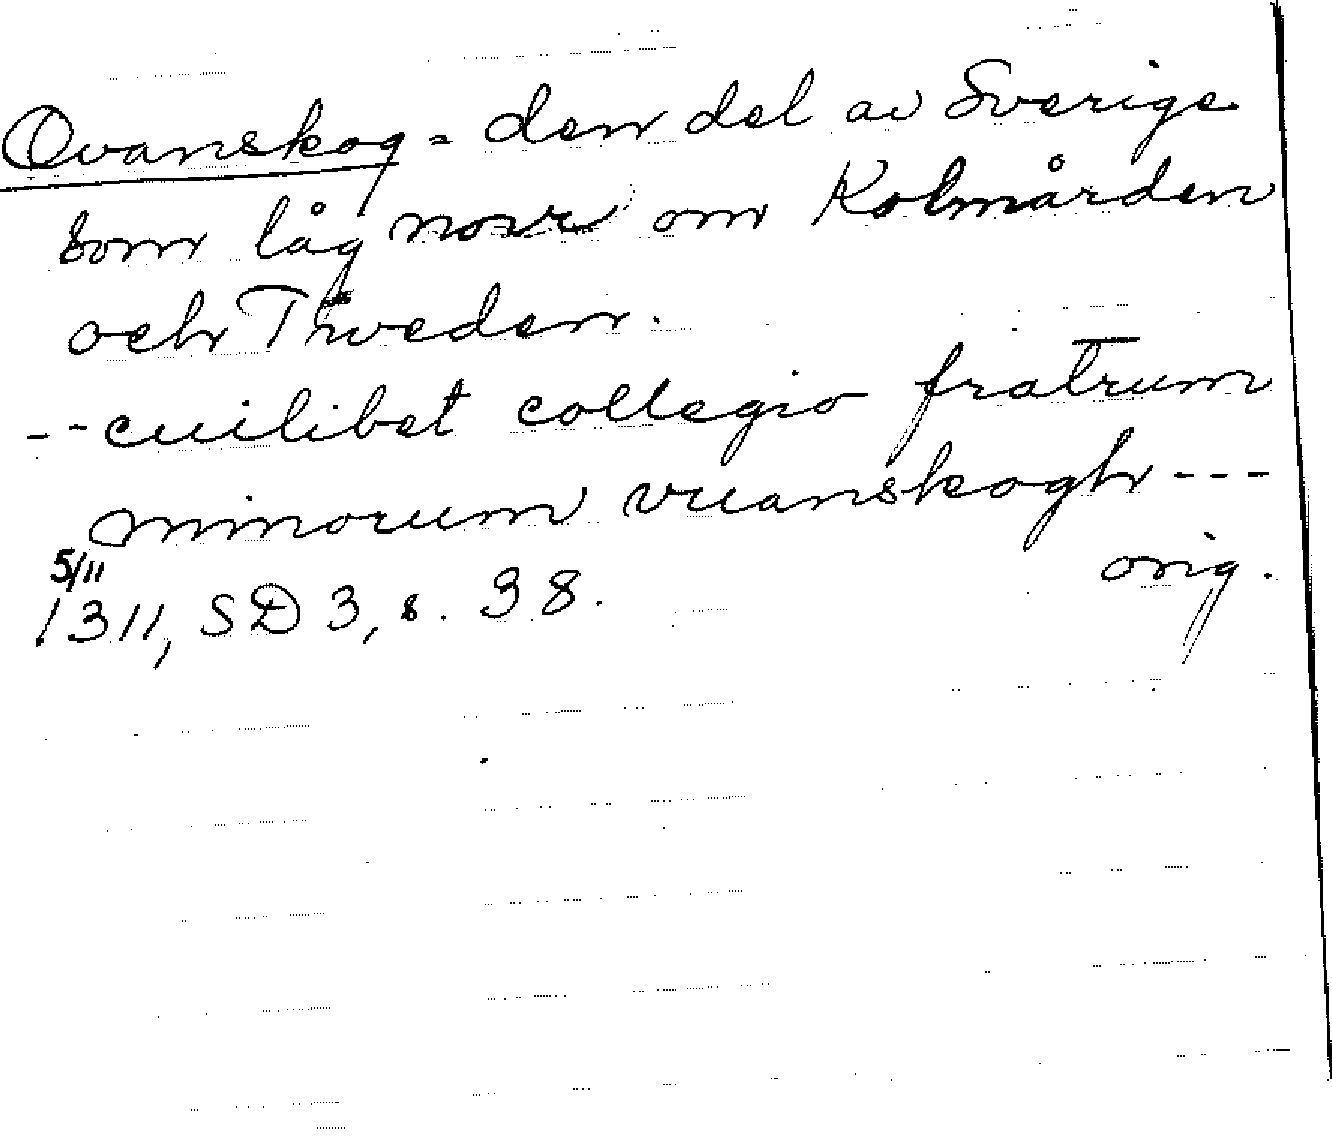 Ovanskog = den del av Sverige
som låg norr om Kolmården
och Tiveden.
-- cuilibet collegio fratrum
minorum vuanskogh ---
5/11 orig.
1311, SD 3, s. 38.